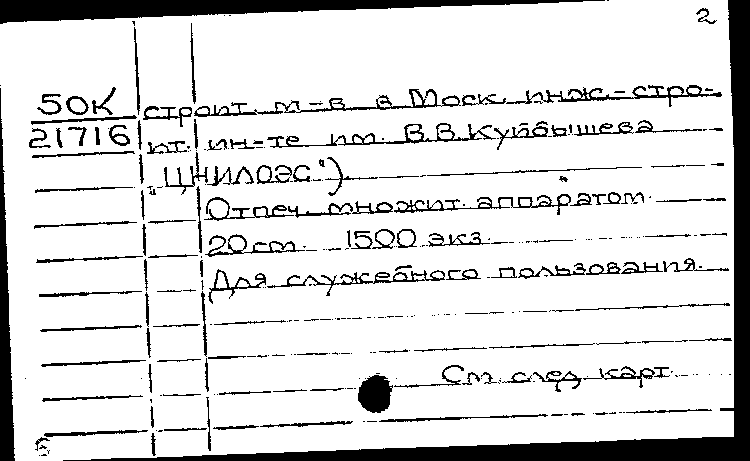 2
50К строит. м-в в Моск. инж.-стро-
21716 ит. ин-те им. В.В.Куйбышева
„ЦНИЛОЭС").
Отпеч. множит. аппаратом.
20 см. 1500 экз.
Для служебного пользования.
См. след. карт.